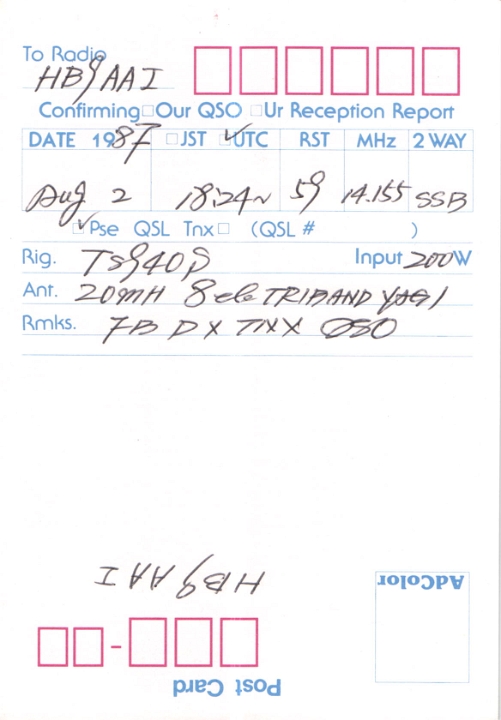 To Radio
HB9AAI
Confirming □ Our QSO □ Ur Reception Report
DATE 1987 □ JST ☑ UTC RST MHz 2 WAY
Aug 2 18:24~ 59 14.155 SSB
☑ Pse QSL Tnx □ (QSL # )
Rig. TS940S Input 200W
Ant. 20mH 8ele TRIBAND YAGI
Rmks. FB DX TNX QSO
HB9AAI
AdColor
Post Card